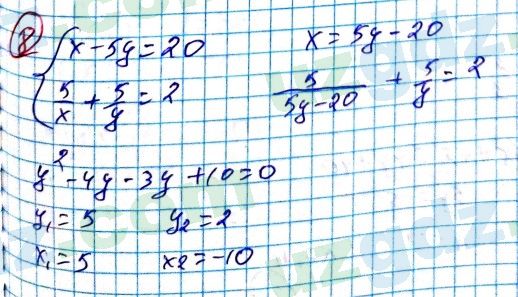 8
{ x - 5y = 20    x = 5y - 20
5/x + 5/y = 2    5/(5y-20) + 5/y = 2
y² - 4y - 3y + 10 = 0
y₁ = 5    y₂ = 2
x₁ = 5    x₂ = -10